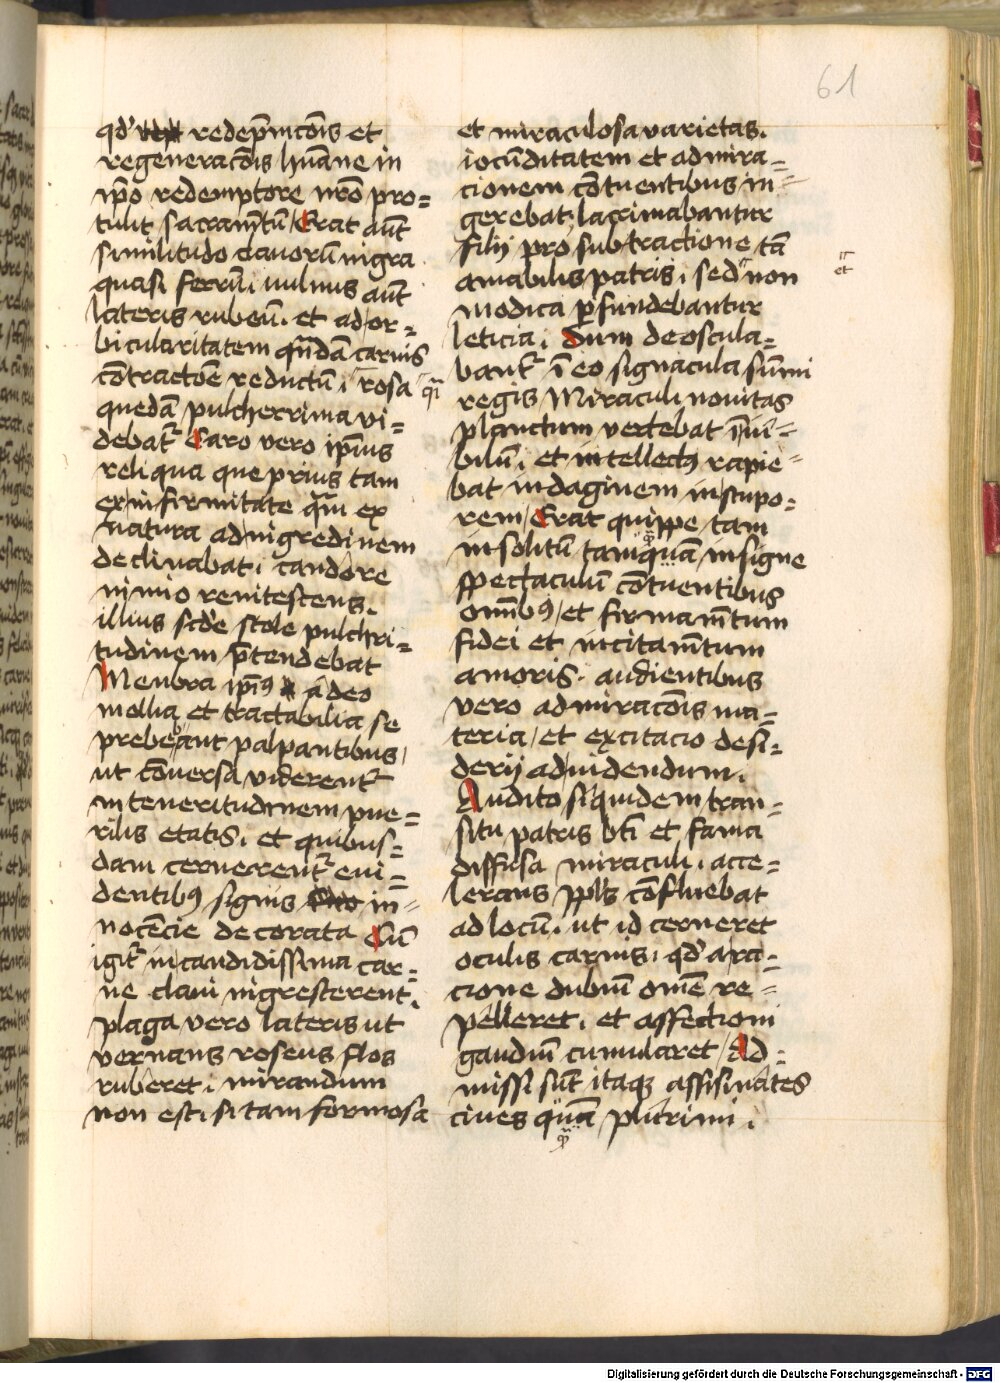 61
qd' redēpm̄cōis et
regeneracōis hūane in
ip̄o redemptore nr̄o pro=
tulit sacramētū / Erat aūt
similitudo clavorū nigra
quasi ferri. uulnus aūt
lateris rubeū. et ad or=
bicularitatem qndā carnis
cōtractōe reductū. rosa qi
quedā pulcherrima vi=
debat᷑ Caro vero ip̄ius
reliqua que prius tam
ex infirmitate qm̄ ex
natura ad nigredinem
declinabat. candore
nimio renitescens.
illius scd'e stole pulchri=
tudinem p̄tendebat
Menbra ip̄i9 adeo
mollia et tractabilia se
prebebant palpantibus /
ut cōversa viderent᷑
in teneritudinem pue=
rilis etatis. et quibus=
dam cernerent᷑ eui=
dentib9 signis in=
nocēcie decorata Cū
igit᷑ in candidissima car=
ne claui nigrescerent.
plaga vero lateris ut
vernans roseus flos
ruberet. mirandum
non est. si tam formosa
et miraculosa varietas.
iocūditatem et admira=
cionem cōtuentibus in=
gerebat. lacrimabantur
filij pro subtractione tā
amabilis patris. sed non
et
modica p̄fundebantur
leticia. Dum deoscula=
bant᷑ ī eo signacula sūmi
regis Miraculi nouitas
planctum vertebat ī iui=
bilū. et intellectus rapie=
bat indaginem in stupo=
rem / Erat quippe tam
insolitū tamquam insigne
spectaculū cōtuentibus
omīb9 / et firmamētum
fidei et incitamētum
amoris. audientibus
vero admiracōis ma=
teria / et excitacio desi=
derij ad uidendum.
Audito siquidem tran=
situ patris bti et fama
diffusa miraculi. acce=
lerans ppls cōfluebat
ad locū. ut id cerneret
oculis carnis. qd' a ra=
cione dubiū omē re=
pelleret. et affectioni
gaudiū cumularet / Ad=
missi sūt itaq3 assisinates
ciues quā plurimi.
Digitalisierung gefördert durch die Deutsche Forschungsgemeinschaft - DFG